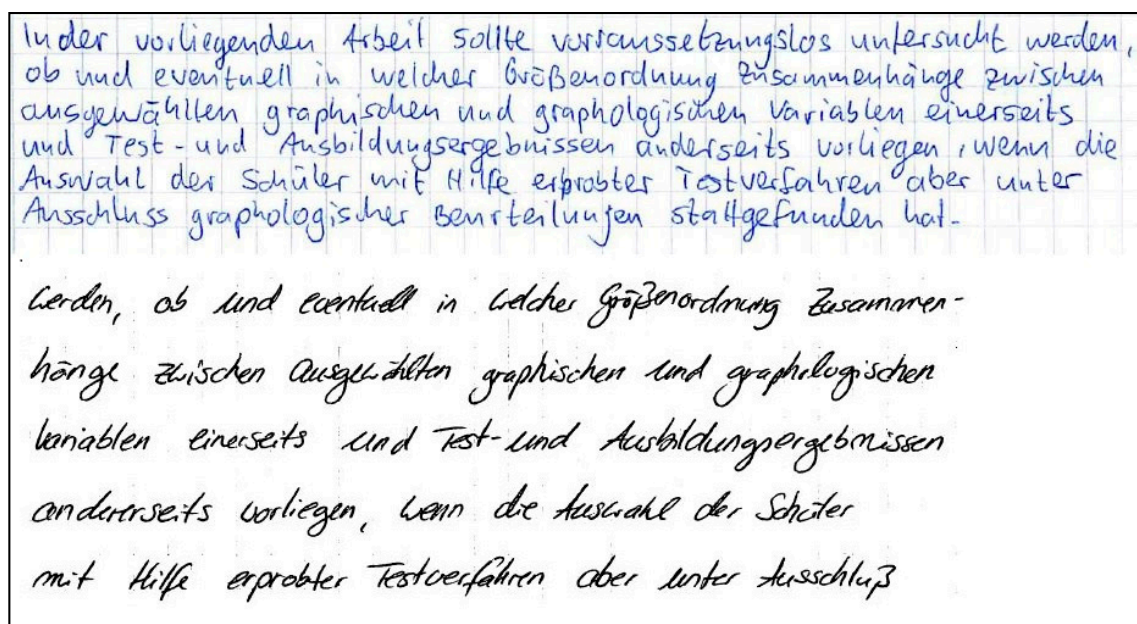 In der vorliegenden Arbeit sollte vorraussetzungslos untersucht werden,
ob und eventuell in welcher Größenordnung Zusammenhänge zwischen
ausgewählten graphischen und graphologischen Variablen einerseits
und Test- und Ausbildungsergebnissen anderseits vorliegen, wenn die
Auswahl der Schüler mit Hilfe erprobter Testverfahren aber unter
Ausschluss graphologischer Beurteilungen stattgefunden hat.
werden, ob und eventuell in welcher Größenordnung Zusammen-
hänge zwischen ausgewählten graphischen und graphologischen
Variablen einerseits und Test- und Ausbildungsergebnissen
andererseits vorliegen, wenn die Auswahl der Schüler
mit Hilfe erprobter Testverfahren aber unter Ausschluß